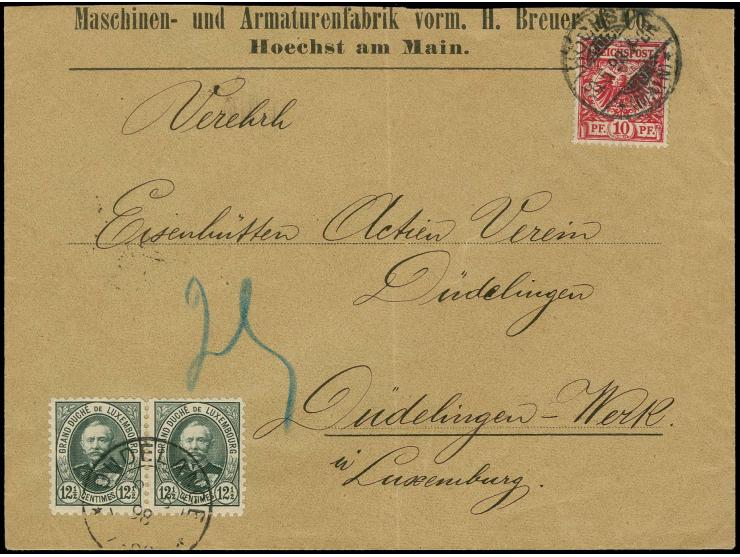 Maschinen- und Armaturenfabrik vorm. H. Breuer & Co.
Hoechst am Main.
REICHSPOST
PF. 10 PF.
Verehrh
Eisenhütten Actien Verein
Düdelingen
25
Düdelingen-Werk.
i/ Luxemburg.
GRAND DUCHÉ DE LUXEMBOURG GRAND DUCHÉ DE LUXEMBOURG
12½ CENTIMES 12½ 12½ CENTIMES 12½
98